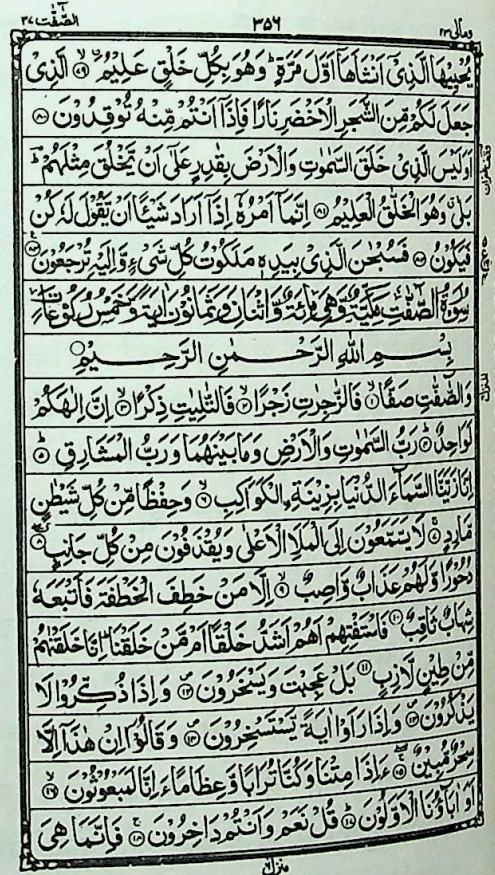 وَمَالِیَ ٢٣ ٣٥٦ الصّٰٓفّٰت ٣٧
یُحْیِیْهَا الَّذِیْۤ اَنْشَاَهَاۤ اَوَّلَ مَرَّةٍ ؕ وَهُوَ بِكُلِّ خَلْقٍ عَلِیْمُ ۙ﴿۷۹﴾ الَّذِیْ
جَعَلَ لَكُمْ مِّنَ الشَّجَرِ الْاَخْضَرِ نَارًا فَاِذَاۤ اَنْتُمْ مِّنْهُ تُوْقِدُوْنَ ﴿۸۰﴾
اَوَلَیْسَ الَّذِیْ خَلَقَ السَّمٰوٰتِ وَالْاَرْضَ بِقٰدِرٍ عَلٰۤی اَنْ یَّخْلُقَ مِثْلَهُمْ ؕ
بَلٰی ۗ وَهُوَ الْخَلّٰقُ الْعَلِیْمُ ﴿۸۱﴾ اِنَّمَاۤ اَمْرُهٗۤ اِذَاۤ اَرَادَ شَیْـًٔا اَنْ یَّقُوْلَ لَهٗ كُنْ
فَیَكُوْنُ ﴿۸۲﴾ فَسُبْحٰنَ الَّذِیْ بِیَدِهٖ مَلَكُوْتُ كُلِّ شَیْءٍ وَّاِلَیْهِ تُرْجَعُوْنَ ﴿۸۳﴾
سُوْرَةُ الصّٰٓفّٰتِ مَكِّیَّةٌ وَّهِیَ مِائَةٌ وَّاثْنَانِ وَثَمَانُوْنَ اٰیَةً وَّخَمْسُ رُكُوْعَاتٍ
بِسْمِ اللهِ الرَّحْمٰنِ الرَّحِیْمِ
وَالصّٰٓفّٰتِ صَفًّا ۙ﴿۱﴾ فَالزّٰجِرٰتِ زَجْرًا ۙ﴿۲﴾ فَالتّٰلِیٰتِ ذِكْرًا ۙ﴿۳﴾ اِنَّ اِلٰهَكُمْ
لَوَاحِدٌ ؕ﴿۴﴾ رَبُّ السَّمٰوٰتِ وَالْاَرْضِ وَمَا بَیْنَهُمَا وَرَبُّ الْمَشَارِقِ ؕ﴿۵﴾
اِنَّا زَیَّنَّا السَّمَآءَ الدُّنْیَا بِزِیْنَةِ ِ۟الْكَوَاكِبِ ۙ﴿۶﴾ وَحِفْظًا مِّنْ كُلِّ شَیْطٰنٍ
مَّارِدٍ ۚ﴿۷﴾ لَا یَسَّمَّعُوْنَ اِلَی الْمَلَاِ الْاَعْلٰی وَیُقْذَفُوْنَ مِنْ كُلِّ جَانِبٍ ﴿۸﴾
دُحُوْرًا وَّلَهُمْ عَذَابٌ وَّاصِبٌ ۙ﴿۹﴾ اِلَّا مَنْ خَطِفَ الْخَطْفَةَ فَاَتْبَعَهٗ
شِهَابٌ ثَاقِبٌ ﴿۱۰﴾ فَاسْتَفْتِهِمْ اَهُمْ اَشَدُّ خَلْقًا اَمْ مَّنْ خَلَقْنَا ؕ اِنَّا خَلَقْنٰهُمْ
مِّنْ طِیْنٍ لَّازِبٍ ﴿۱۱﴾ بَلْ عَجِبْتَ وَیَسْخَرُوْنَ ۪﴿۱۲﴾ وَاِذَا ذُكِّرُوْا لَا
یَذْكُرُوْنَ ۪﴿۱۳﴾ وَاِذَا رَاَوْا اٰیَةً یَّسْتَسْخِرُوْنَ ۪﴿۱۴﴾ وَقَالُوْۤا اِنْ هٰذَاۤ اِلَّا
سِحْرٌ مُّبِیْنٌ ۚ﴿۱۵﴾ ءَاِذَا مِتْنَا وَكُنَّا تُرَابًا وَّعِظَامًا ءَاِنَّا لَمَبْعُوْثُوْنَ ۙ﴿۱۶﴾
اَوَ اٰبَآؤُنَا الْاَوَّلُوْنَ ؕ﴿۱۷﴾ قُلْ نَعَمْ وَاَنْتُمْ دَاخِرُوْنَ ۚ﴿۱۸﴾ فَاِنَّمَا هِیَ
منزل ٦